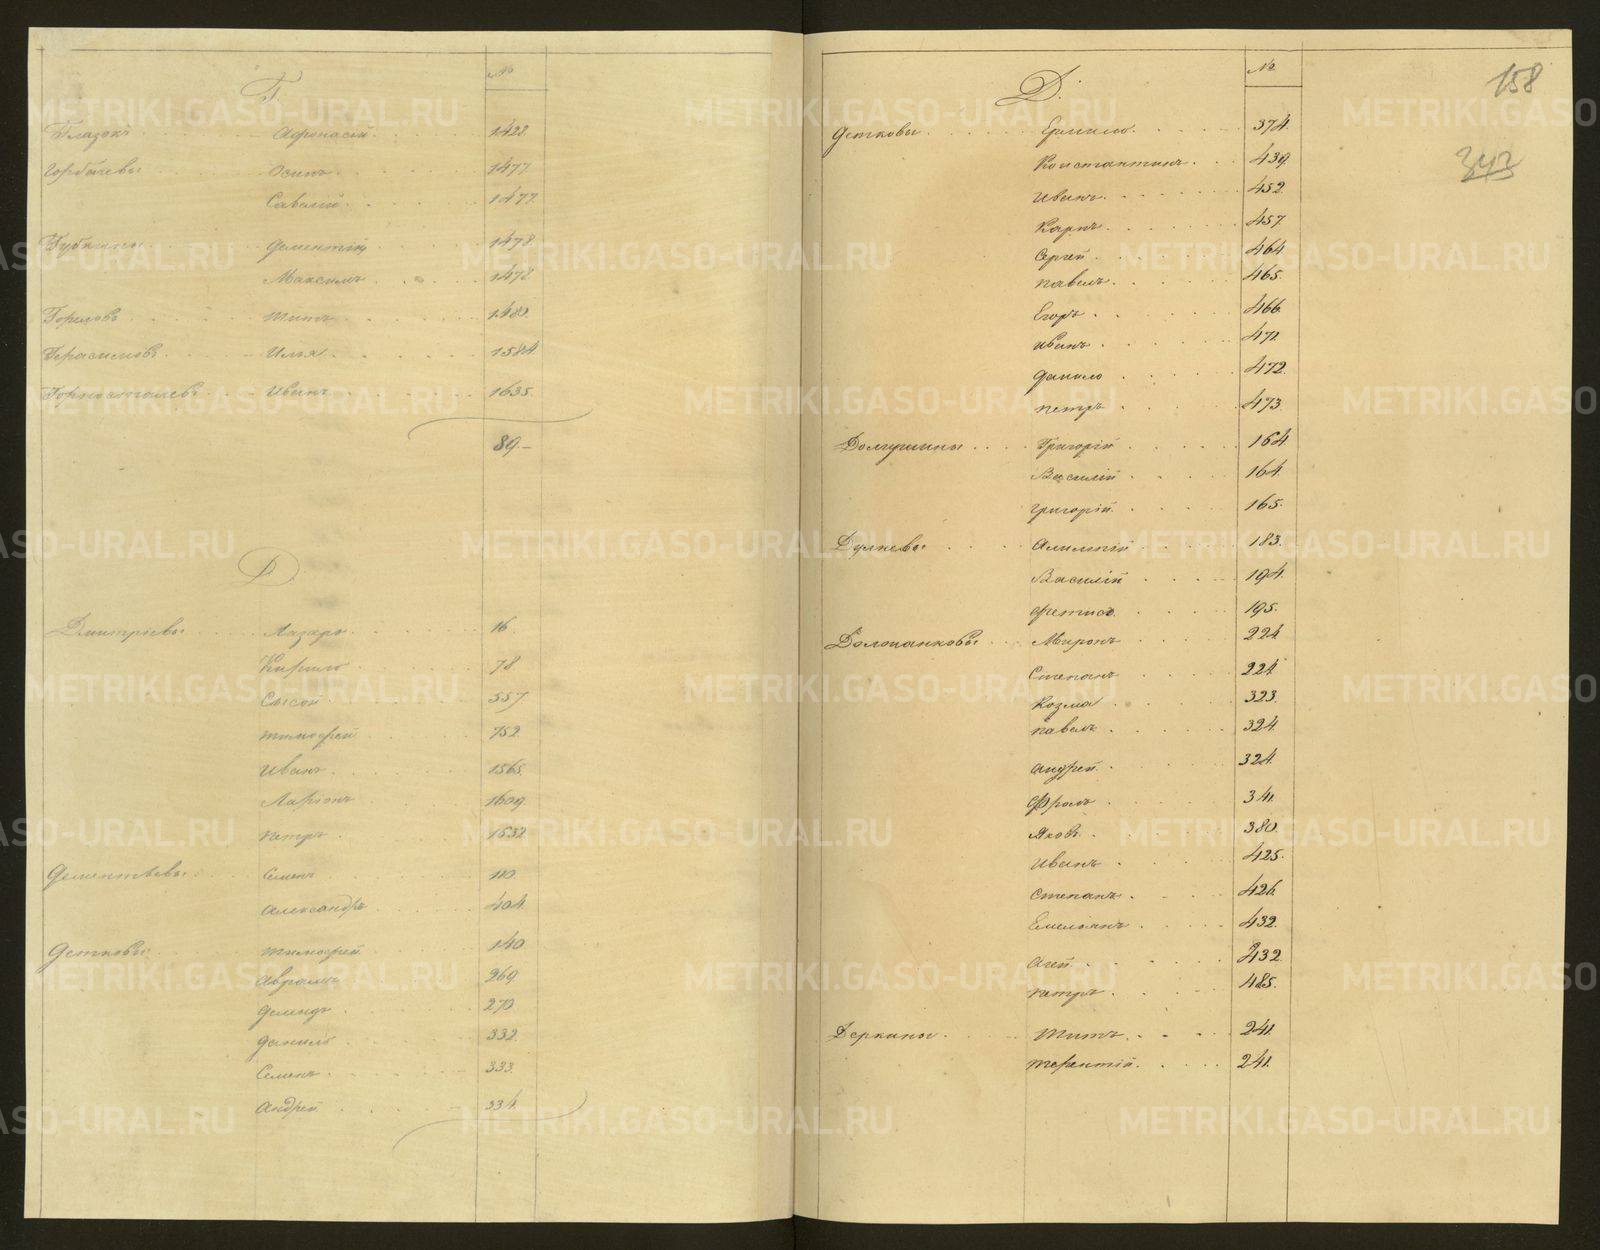 Г. №
Глазовъ Афонасій 1428.
Горбачевы Осипъ 1477
Савелій 1477.
Губашины Дементій 1478.
Максимъ 1478.
Гориловъ Титъ 1480.
Герасимовъ Илья 1584
Горностаевъ Иванъ 1635.
89 –
Д
Дмитріевы Лазарь 16
Кирило 78
Сысой 557
Тимофей 752
Иванъ 1565.
Ларіонъ 1609
Петръ 1632
Дементьевы Семенъ 110.
Александръ 404.
Детковы Тимофей 140
Аврамъ 269
Демидъ 270
Данилъ 332.
Семенъ 333.
Андрей 334.
Д. №
158
343
Детковы Ермило 374.
Константинъ 439.
Иванъ 452.
Карпъ 457.
Сергей 464
Павелъ 465.
Егоръ 466.
Иванъ 472
Данило 472.
Петръ 473.
Долгушины Григорій 164.
Василій 164.
Григорій 165.
Дулневы Алимпій 183.
Василій 194.
Фетисъ 195.
Доломанковы Миронъ 224
Степанъ 224.
Козма 323.
Павелъ 324.
Андрей 324.
Фролъ 341.
Яковъ 380.
Иванъ 425.
Степанъ 426.
Емельянъ 432.
Агей 432
Петръ 485.
Деркины Титъ 241.
Терентій 241.
METRIKI.GASO-URAL.RU